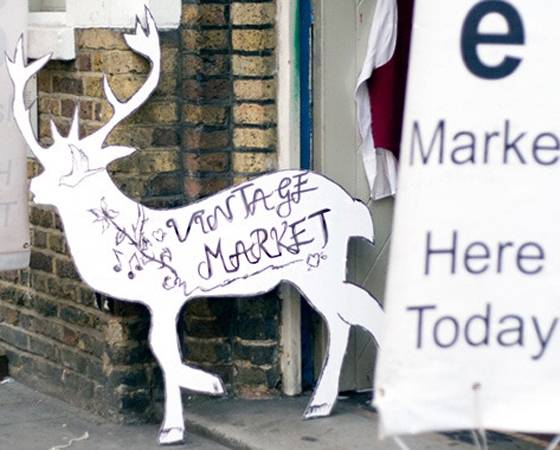 VINTAGE
MARKET
e
Marke
Here
Today